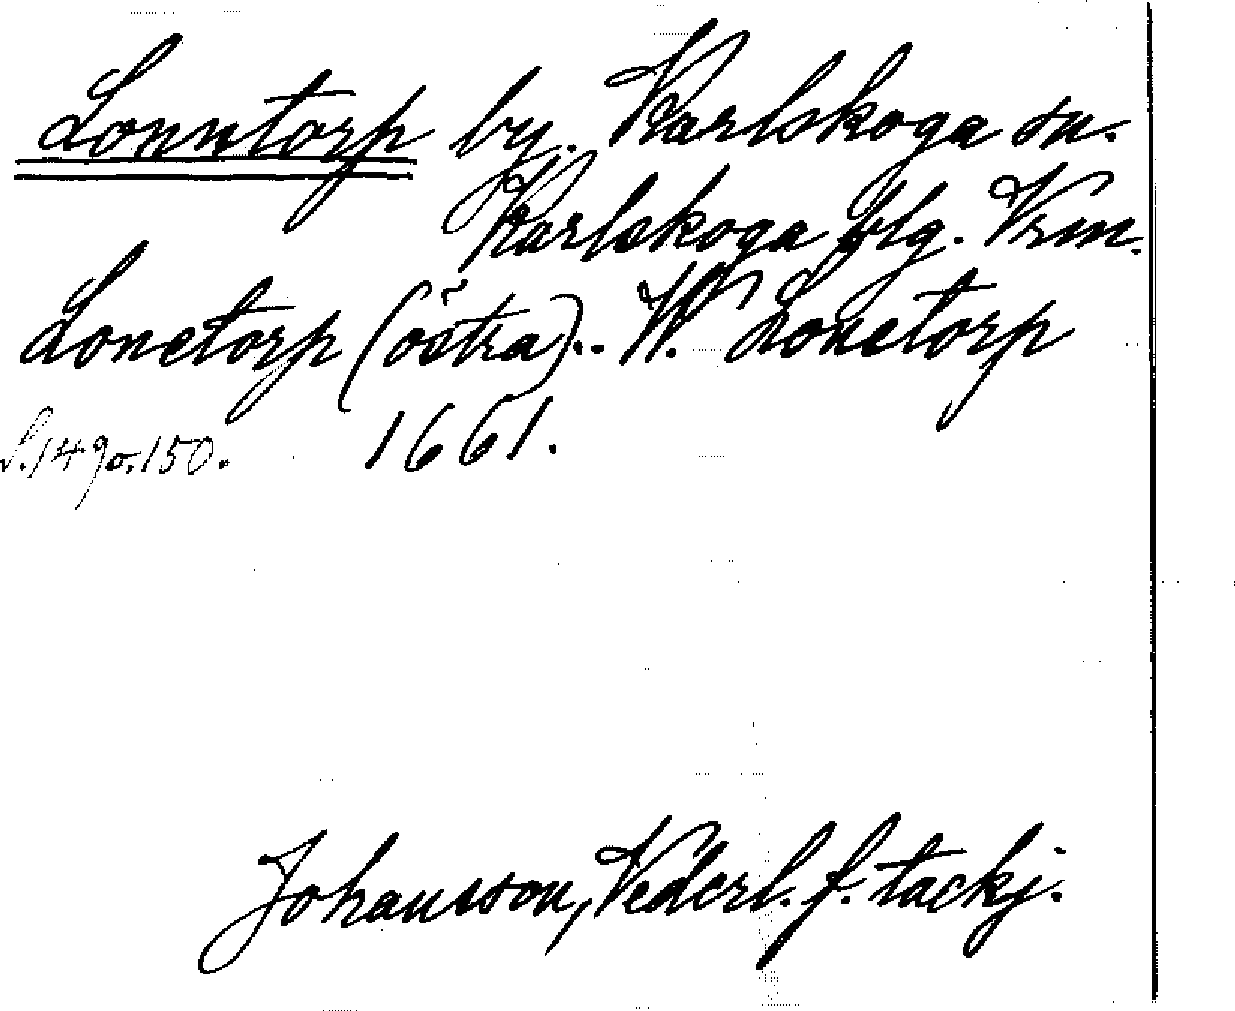 Lonntorp by. Karlskoga sn.
Karlskoga blg. Vrm.
Lonetorp (östra).. W. Lonetorp
1661.
S. 149 o. 150.
Johansson, Vederl. f. tackj.